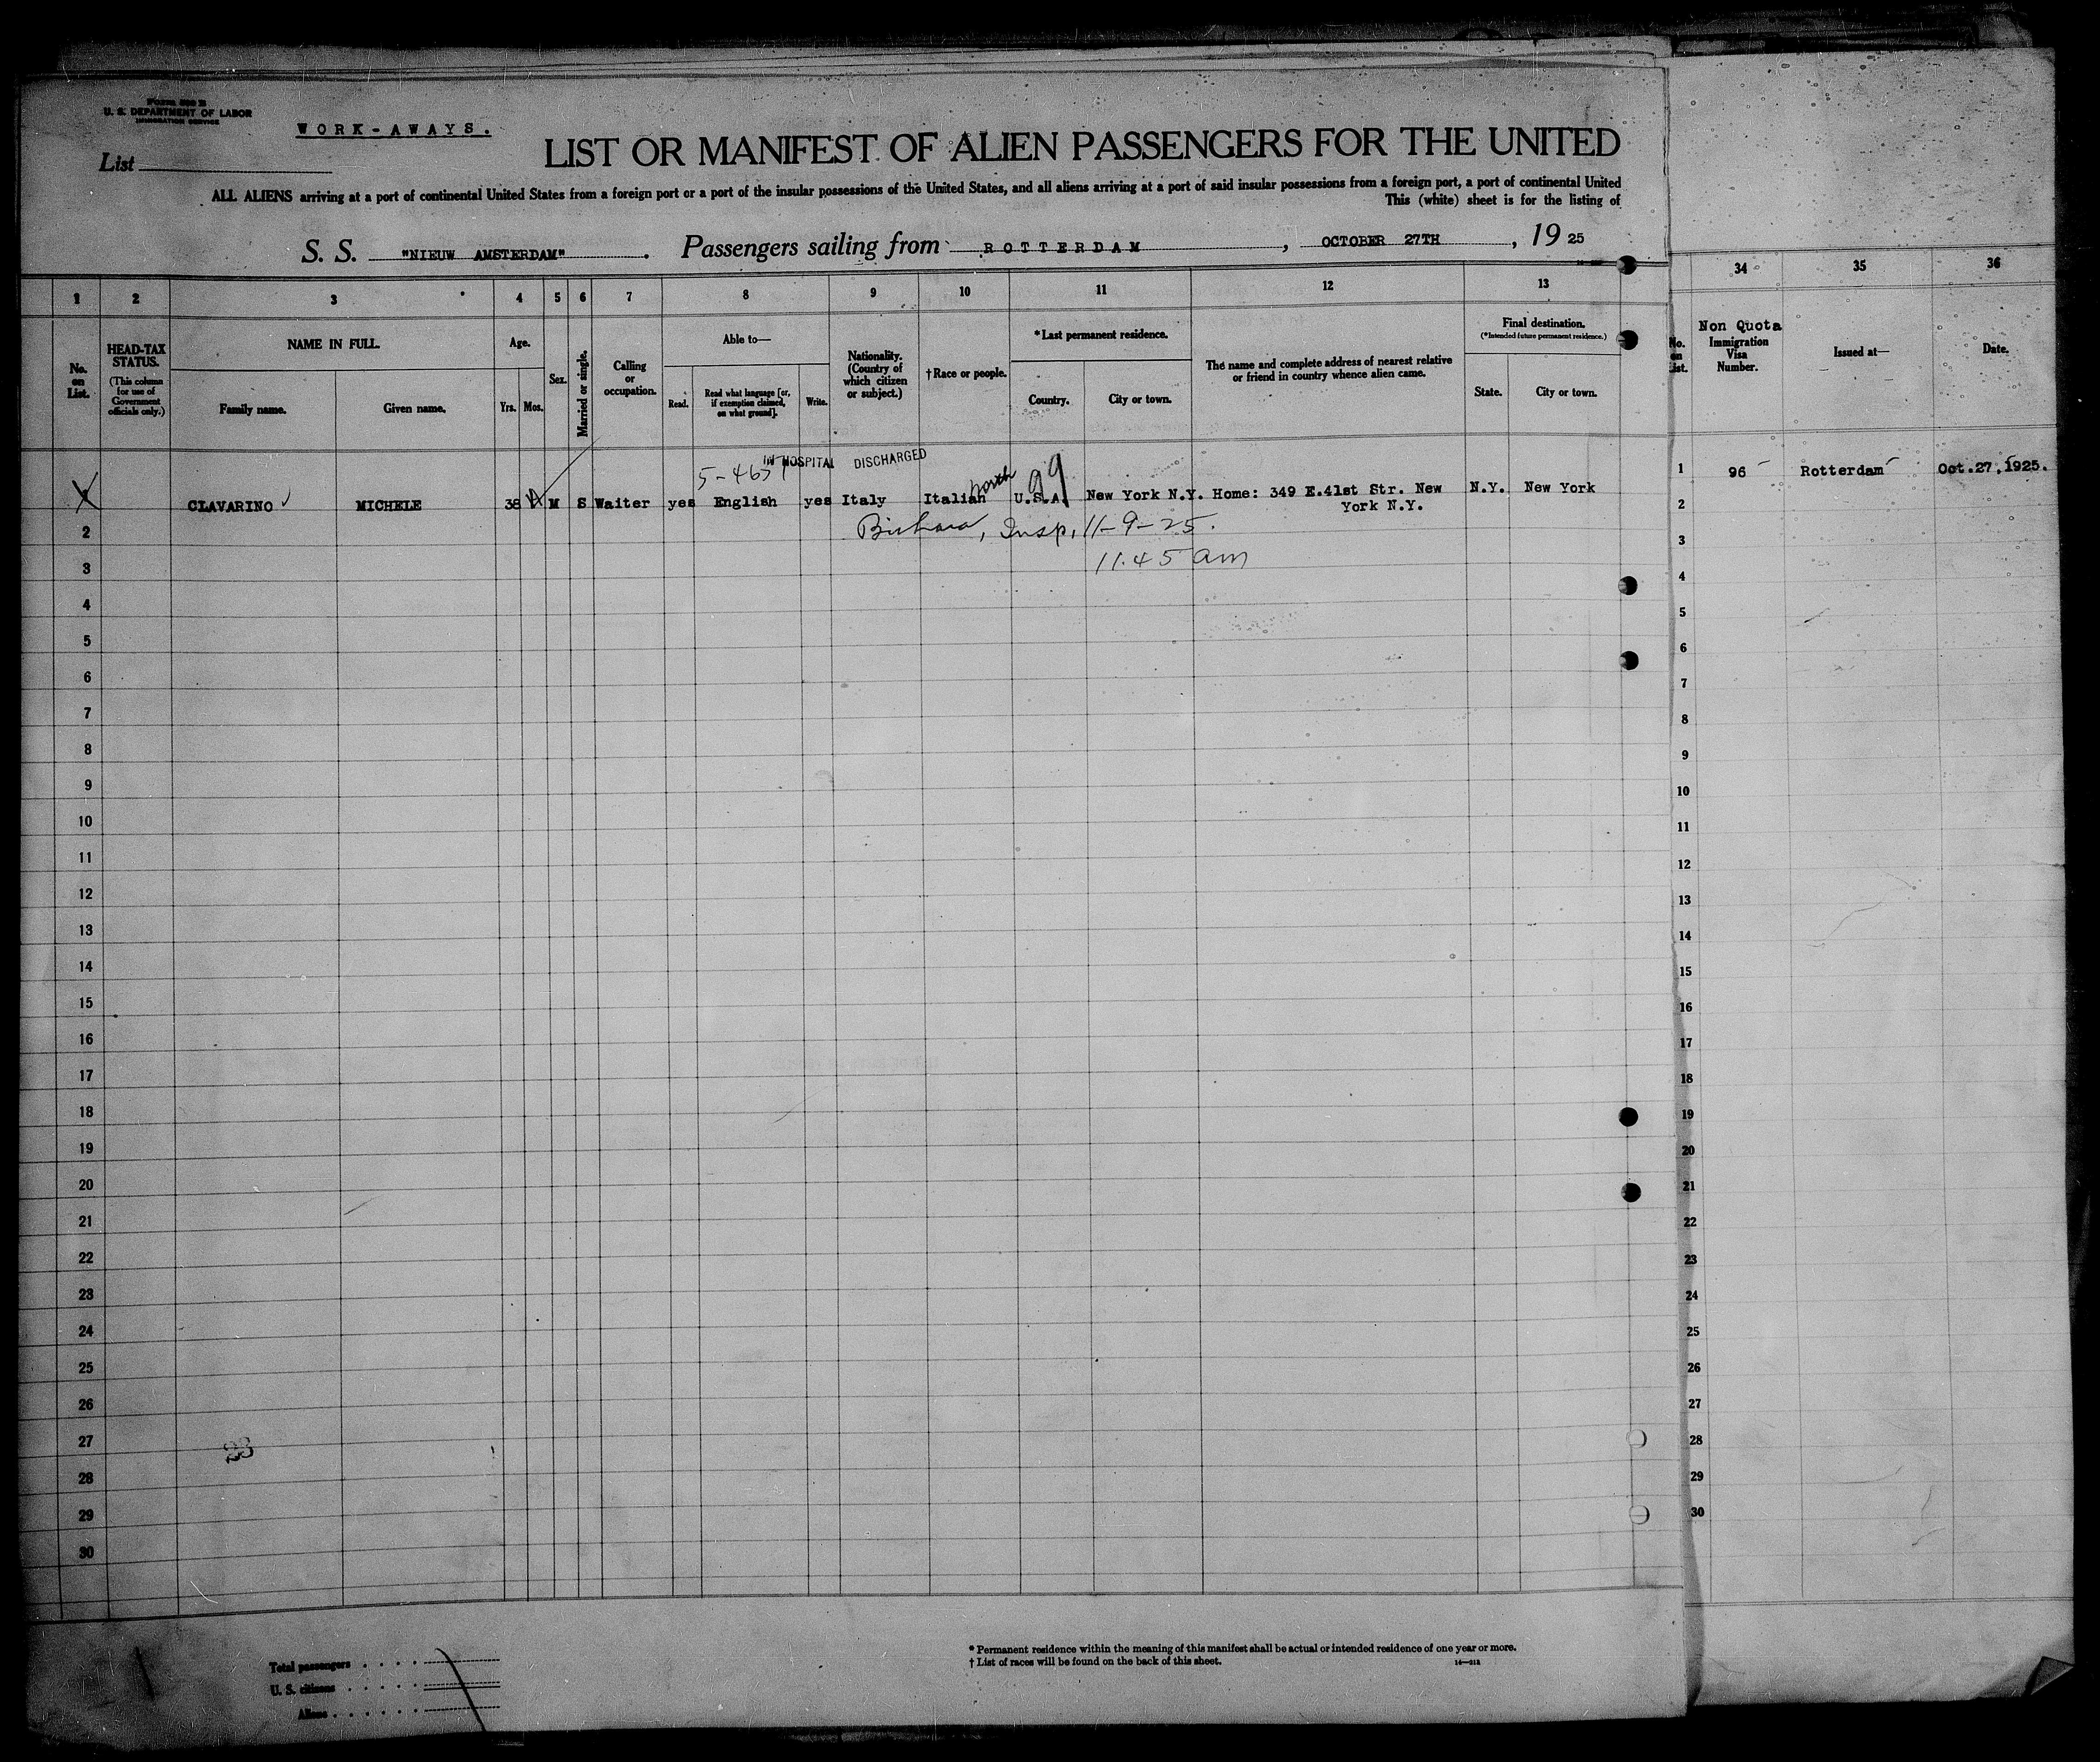 Form 500 B
U. S. DEPARTMENT OF LABOR
IMMIGRATION SERVICE
WORK-AWAYS.
List
LIST OR MANIFEST OF ALIEN PASSENGERS FOR THE UNITED
ALL ALIENS arriving at a port of continental United States from a foreign port or a port of the insular possessions of the United States, and all aliens arriving at a port of said insular possessions from a foreign port, a port of continental United
This (white) sheet is for the listing of
S. S. "NIEUW AMSTERDAM". Passengers sailing from ROTTERDAM, OCTOBER 27TH, 1925
1 2 3 4 5 6 7 8 9 10 11 12 13 34 35 36
No. on List.
HEAD-TAX STATUS.
(This column for use of Government officials only.)
NAME IN FULL.
Family name. Given name.
Age.
Yrs. Mos.
Sex.
Married or single.
Calling or occupation.
Able to—
Read. Read what language [or, if exemption claimed, on what ground]. Write.
Nationality. (Country of which citizen or subject.)
†Race or people.
*Last permanent residence.
Country. City or town.
The name and complete address of nearest relative or friend in country whence alien came.
Final destination.
(*Intended future permanent residence.)
State. City or town.
No. on List.
Non Quota
Immigration Visa Number.
Issued at—
Date.
5-4637 IN HOSPITAL DISCHARGED
north 99
CLAVARINO MICHELE 38 M S Waiter yes English yes Italy Italian U.S.A. New York N.Y. Home: 349 E.41st Str. New York N.Y. N.Y. New York
1 96 Rotterdam Oct.27,1925.
Insp. 11-9-25.
11.45 am
2
3
4
5
6
7
8
9
10
11
12
13
14
15
16
17
18
19
20
21
22
23
24
25
26
27
28
29
30
2
3
4
5
6
7
8
9
10
11
12
13
14
15
16
17
18
19
20
21
22
23
24
25
26
27
28
29
30
Total passengers
U. S. citizens
Aliens
* Permanent residence within the meaning of this manifest shall be actual or intended residence of one year or more.
† List of races will be found on the back of this sheet.